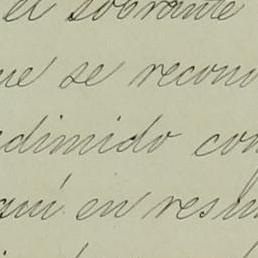 el sobrante
ue se recono
dimido con
quí en resu